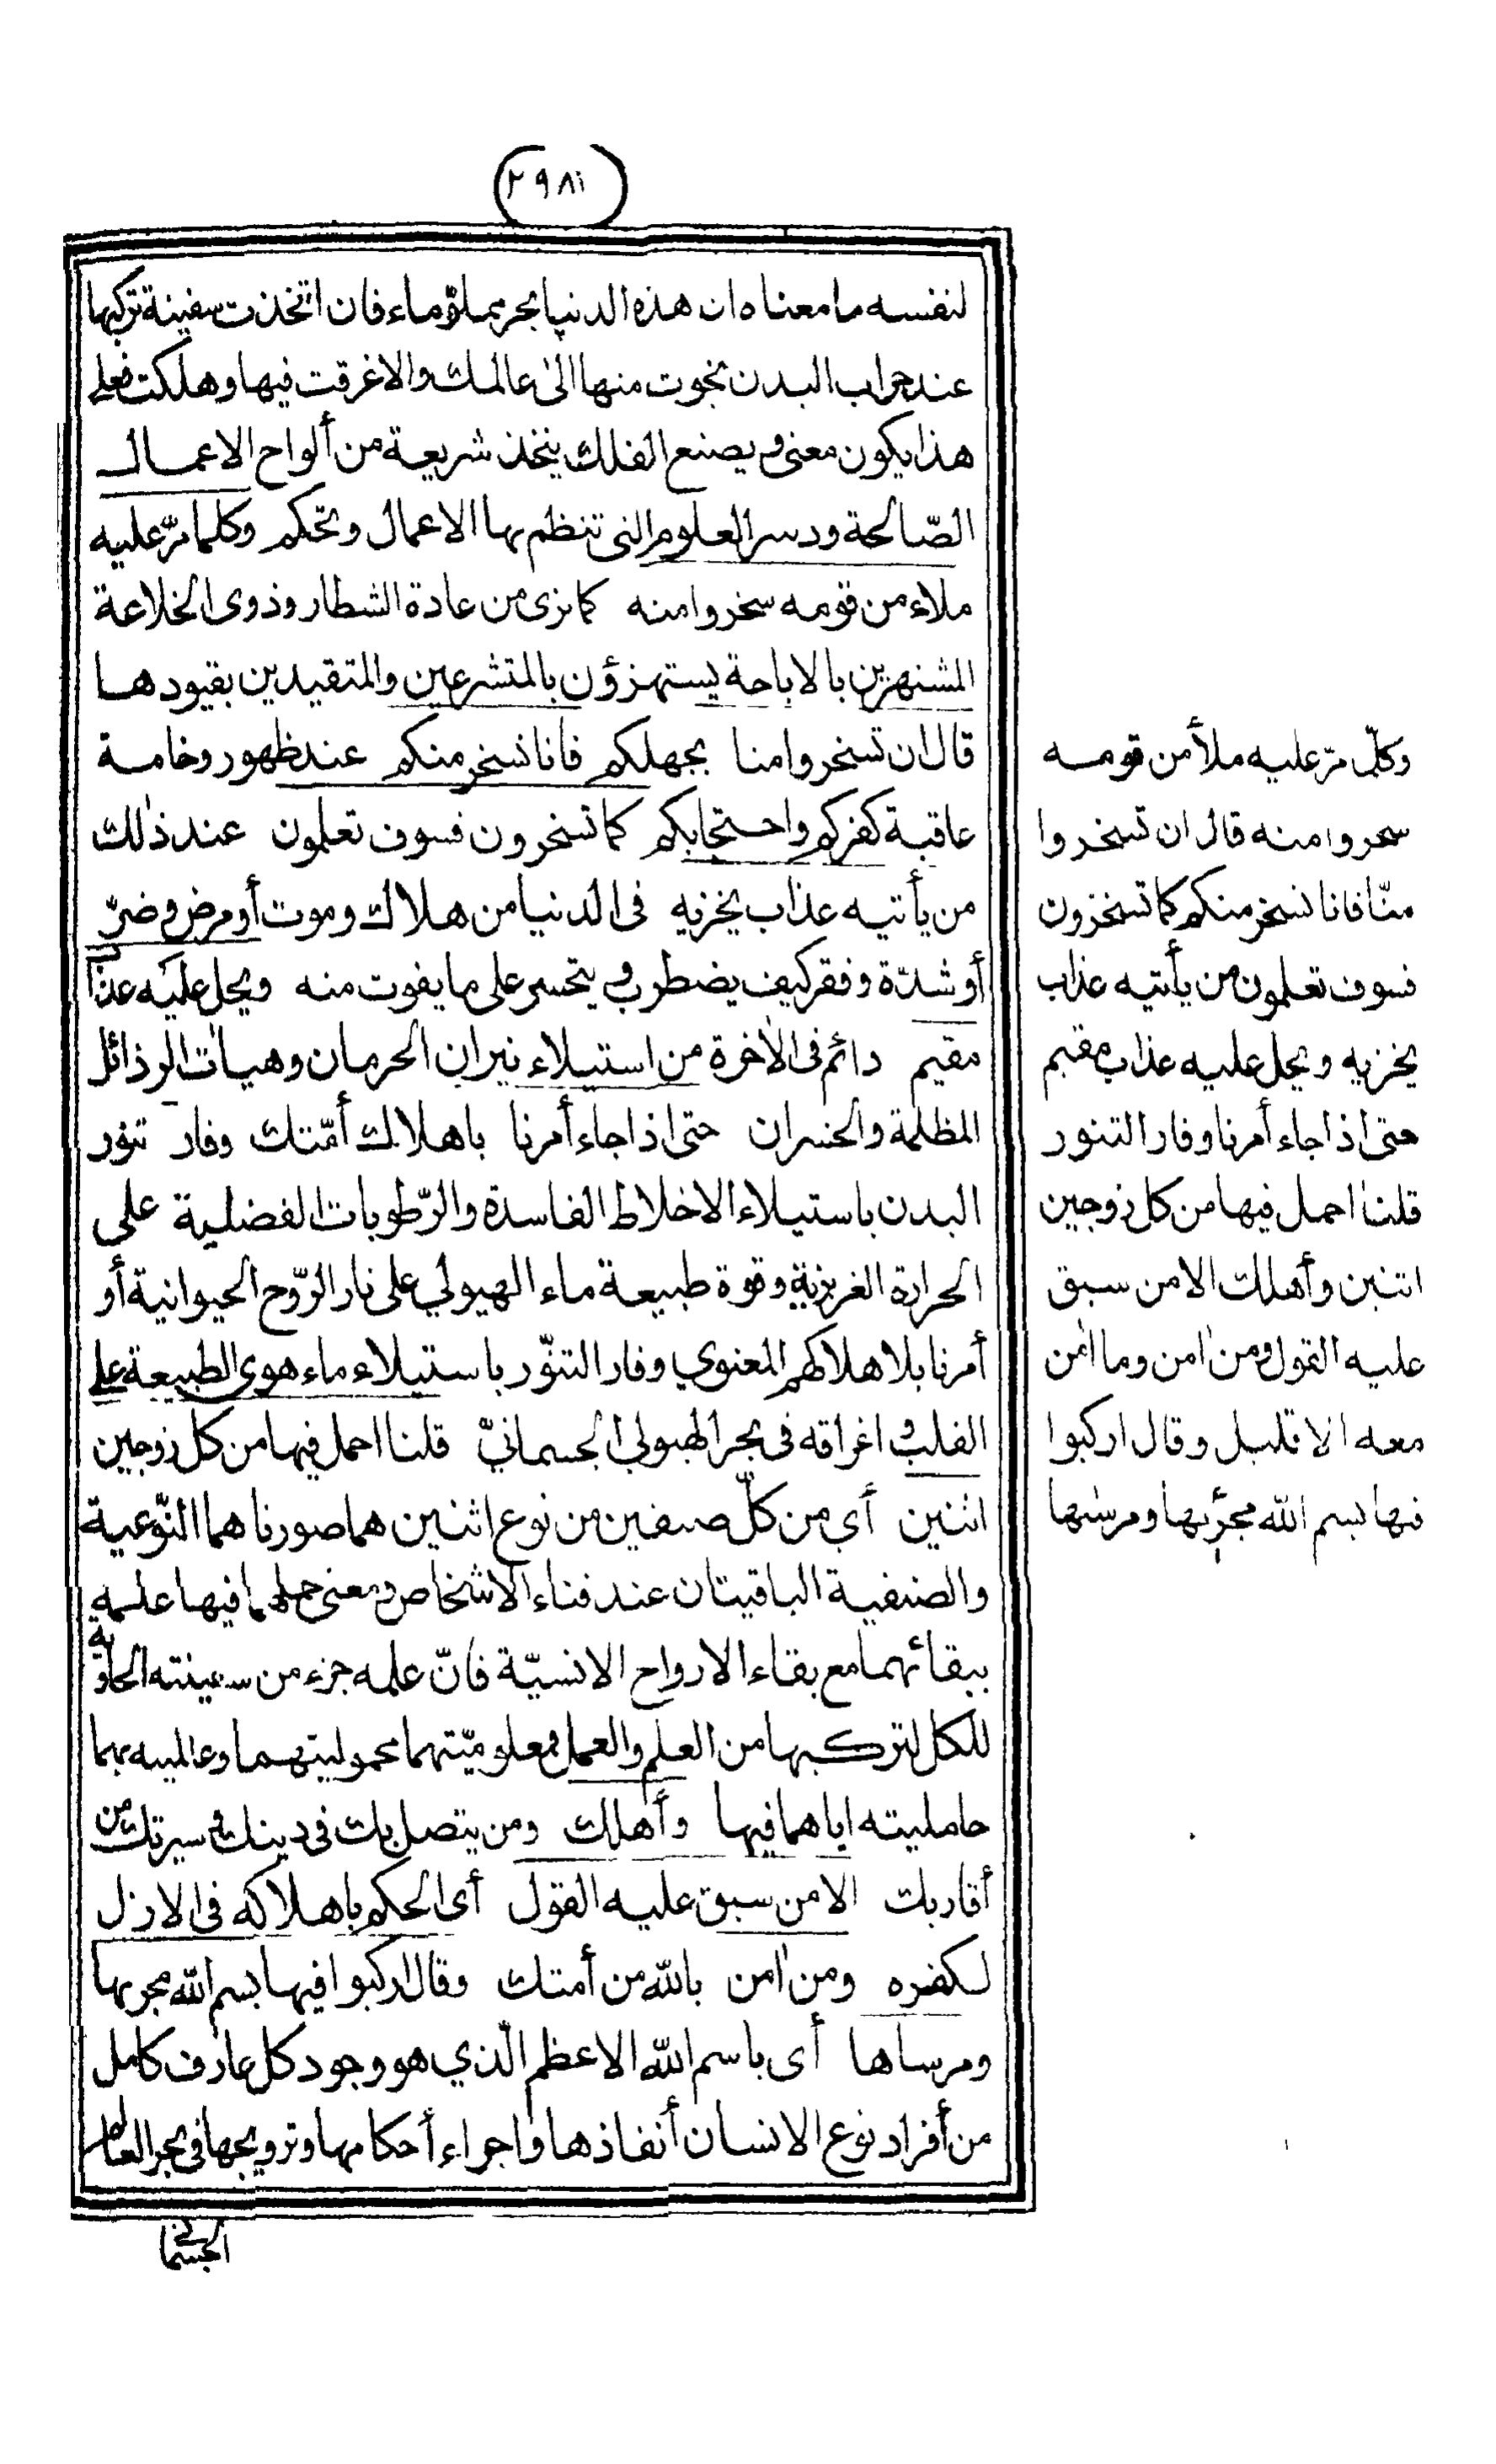 ٢٩٨١
لنفسه ما معناه ان هذه الدنيا بحر مملؤ ماء فان اتخذت سفينة تركبها
عند خراب البدن نجوت منها الىٰ عالمك والا غرقت فيها وهلكت فعلى
هذا يكون معنى ويصنع الفلك يتخذ شريعة من ألواح الاعمال
الصّالحة ودسر العلوم التى تنظم بها الاعمال وتحكم وكلما مرّ عليه
ملاء من قومه سخروا منه كما نرى من عادة الشطار وذوى الخلاعة
المشتهرين بالاباحة يستهزؤن بالمتشرعين والمتقيدين بقيودها
قال ان تسخروا منا بجهلكم فانا نسخر منكم عند ظهور وخامة
عاقبة كفركم واحتجابكم كما تسخرون فسوف تعلمون عند ذٰلك
من يأتيه عذاب يخزيه فى الدنيا من هلاك وموت أو مرض وضرّ
أو شدّة وفقر كيف يضطرب ويتحسر على ما يفوت منه ويحل عليه عذاب
مقيم دائم فى الاٰخرة من استيلاء نيران الحرمان وهيٰات الرذائل
المظلمة والخسران حتى اذا جاء أمرنا باهلاك أمّتك وفار تنور
البدن باستيلاء الاخلاط الفاسدة والرّطوبات الفضلية على
الحرارة الغريزية وقوة طبيعة ماء الهيولي على نار الرّوح الحيوانية أو
أمرنا بلا هلاكهم المعنوي وفار التنوّر باستيلاء ماء هوى الطبيعة على
القلب واغراقه فى بحر الهيولي الجسمانيّ قلنا احمل فيها من كل زوجين
اثنين أي من كلّ صنفين من نوع اثنين هما صورتاهما النّوعية
والصنفية الباقيتان عند فناء الاشخاص ومعنى حملهما فيها علمه
ببقائهما مع بقاء الارواح الانسيّة فانّ علمه جزء من سفينته الحاوية
للكل لتركبها من العلم والعمل فمعلوميّتهما محموليتهما وعالميه بهما
حامليته اياهما فيها وأهلك ومن يتصل بك فى دينك وسيرتك من
أقاربك الا من سبق عليه القول أى الحكم باهلاكه فى الازل
لكفره ومن اٰمن بالله من أمتك وقال اركبوا فيها بسم الله مجريها
ومرساها أى باسم الله الاعظم الّذي هو وجود كل عارف كامل
من أفراد نوع الانسان أنفاذها واجراء أحكامها وترويجها فى بحر العالم
الجسمانى
وكلّما مرّ عليه ملأ من قومه
سخروا منه قال ان تسخروا
منّا فانا نسخر منكم كما تسخرون
فسوف تعلمون من يأتيه عذاب
يخزيه ويحل عليه عذاب مقيم
حتى اذا جاء أمرنا وفار التنور
قلنا احمل فيها من كل زوجين
اثنين وأهلك الا من سبق
عليه القول ومن اٰمن وما اٰمن
معه الا قليل وقال اركبوا
فيها بسم الله مجرٖىٰها ومرسٰىها